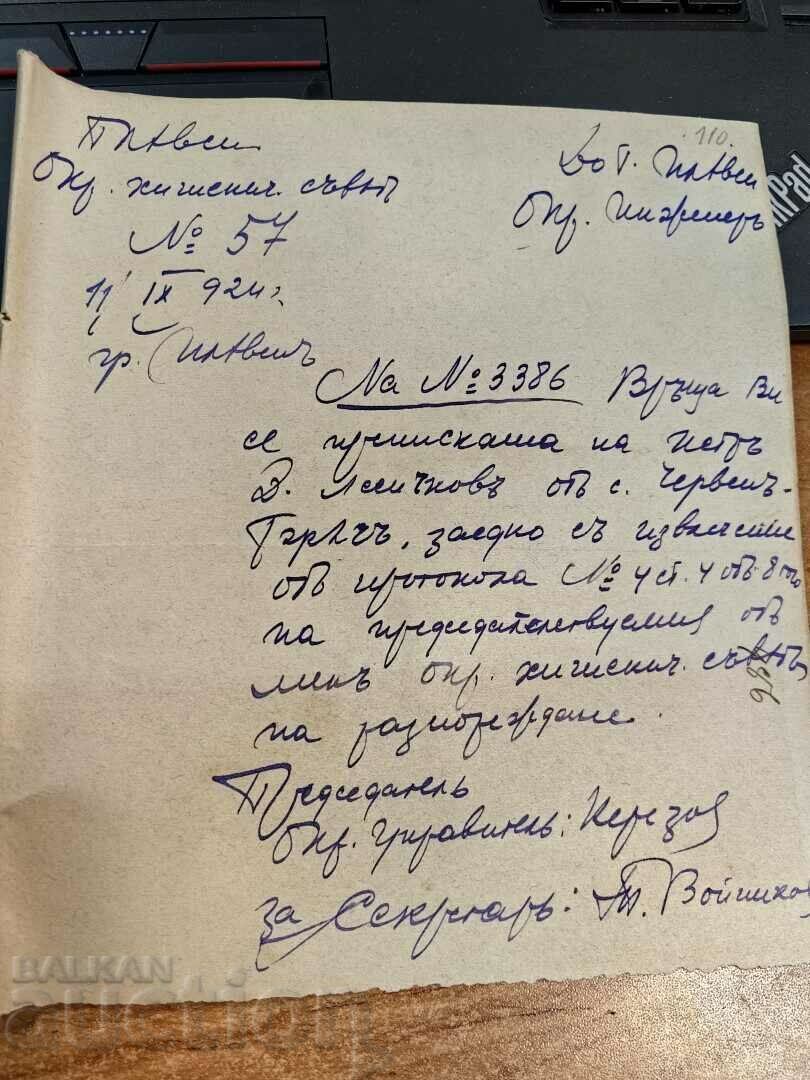 110.
Окр. хигиенич. съветъ
№ 57
11 IX 924 г.
гр. Плѣвенъ
До Г. Плѣвен.
Окр. Инженеръ
На № 3386 Връща Ви
се преписката на Петъръ
Д. отъ с. Червенъ-
Брѣгъ, заедно съ извлечение
отъ протокола № 4 ст. 4 отъ 8 того
на председателствуемия отъ
менъ окр. хигиенич. съветъ
на разпореждане.
Председатель
Окр. Управитель:
за Секретарь: Войников
BALKAN
auction
ThinkPad